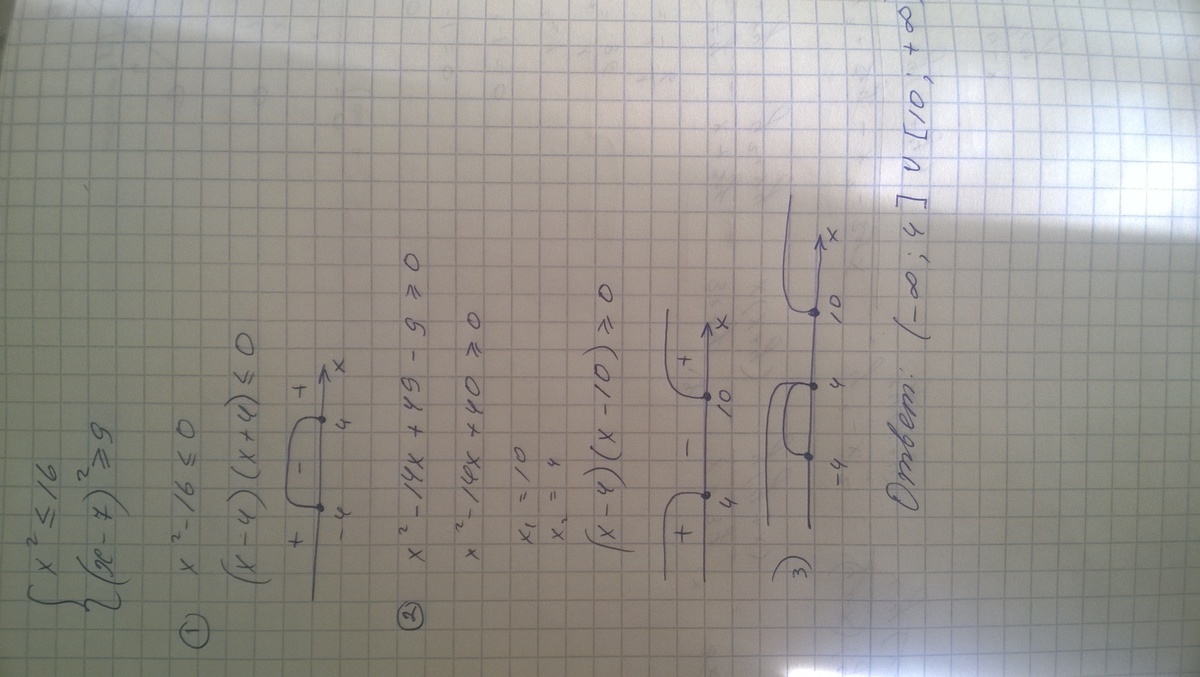 { x² ≤ 16
(x - 7)² ≥ 9
① x² - 16 ≤ 0
(x - 4)(x + 4) ≤ 0
+ - +
-4 4 x
② x² - 14x + 49 - 9 ≥ 0
x² - 14x + 40 ≥ 0
x₁ = 10
x₂ = 4
(x - 4)(x - 10) ≥ 0
+ - +
4 10 x
3)
-4 4 10 x
Ответ: (-∞; 4] ∪ [10; +∞